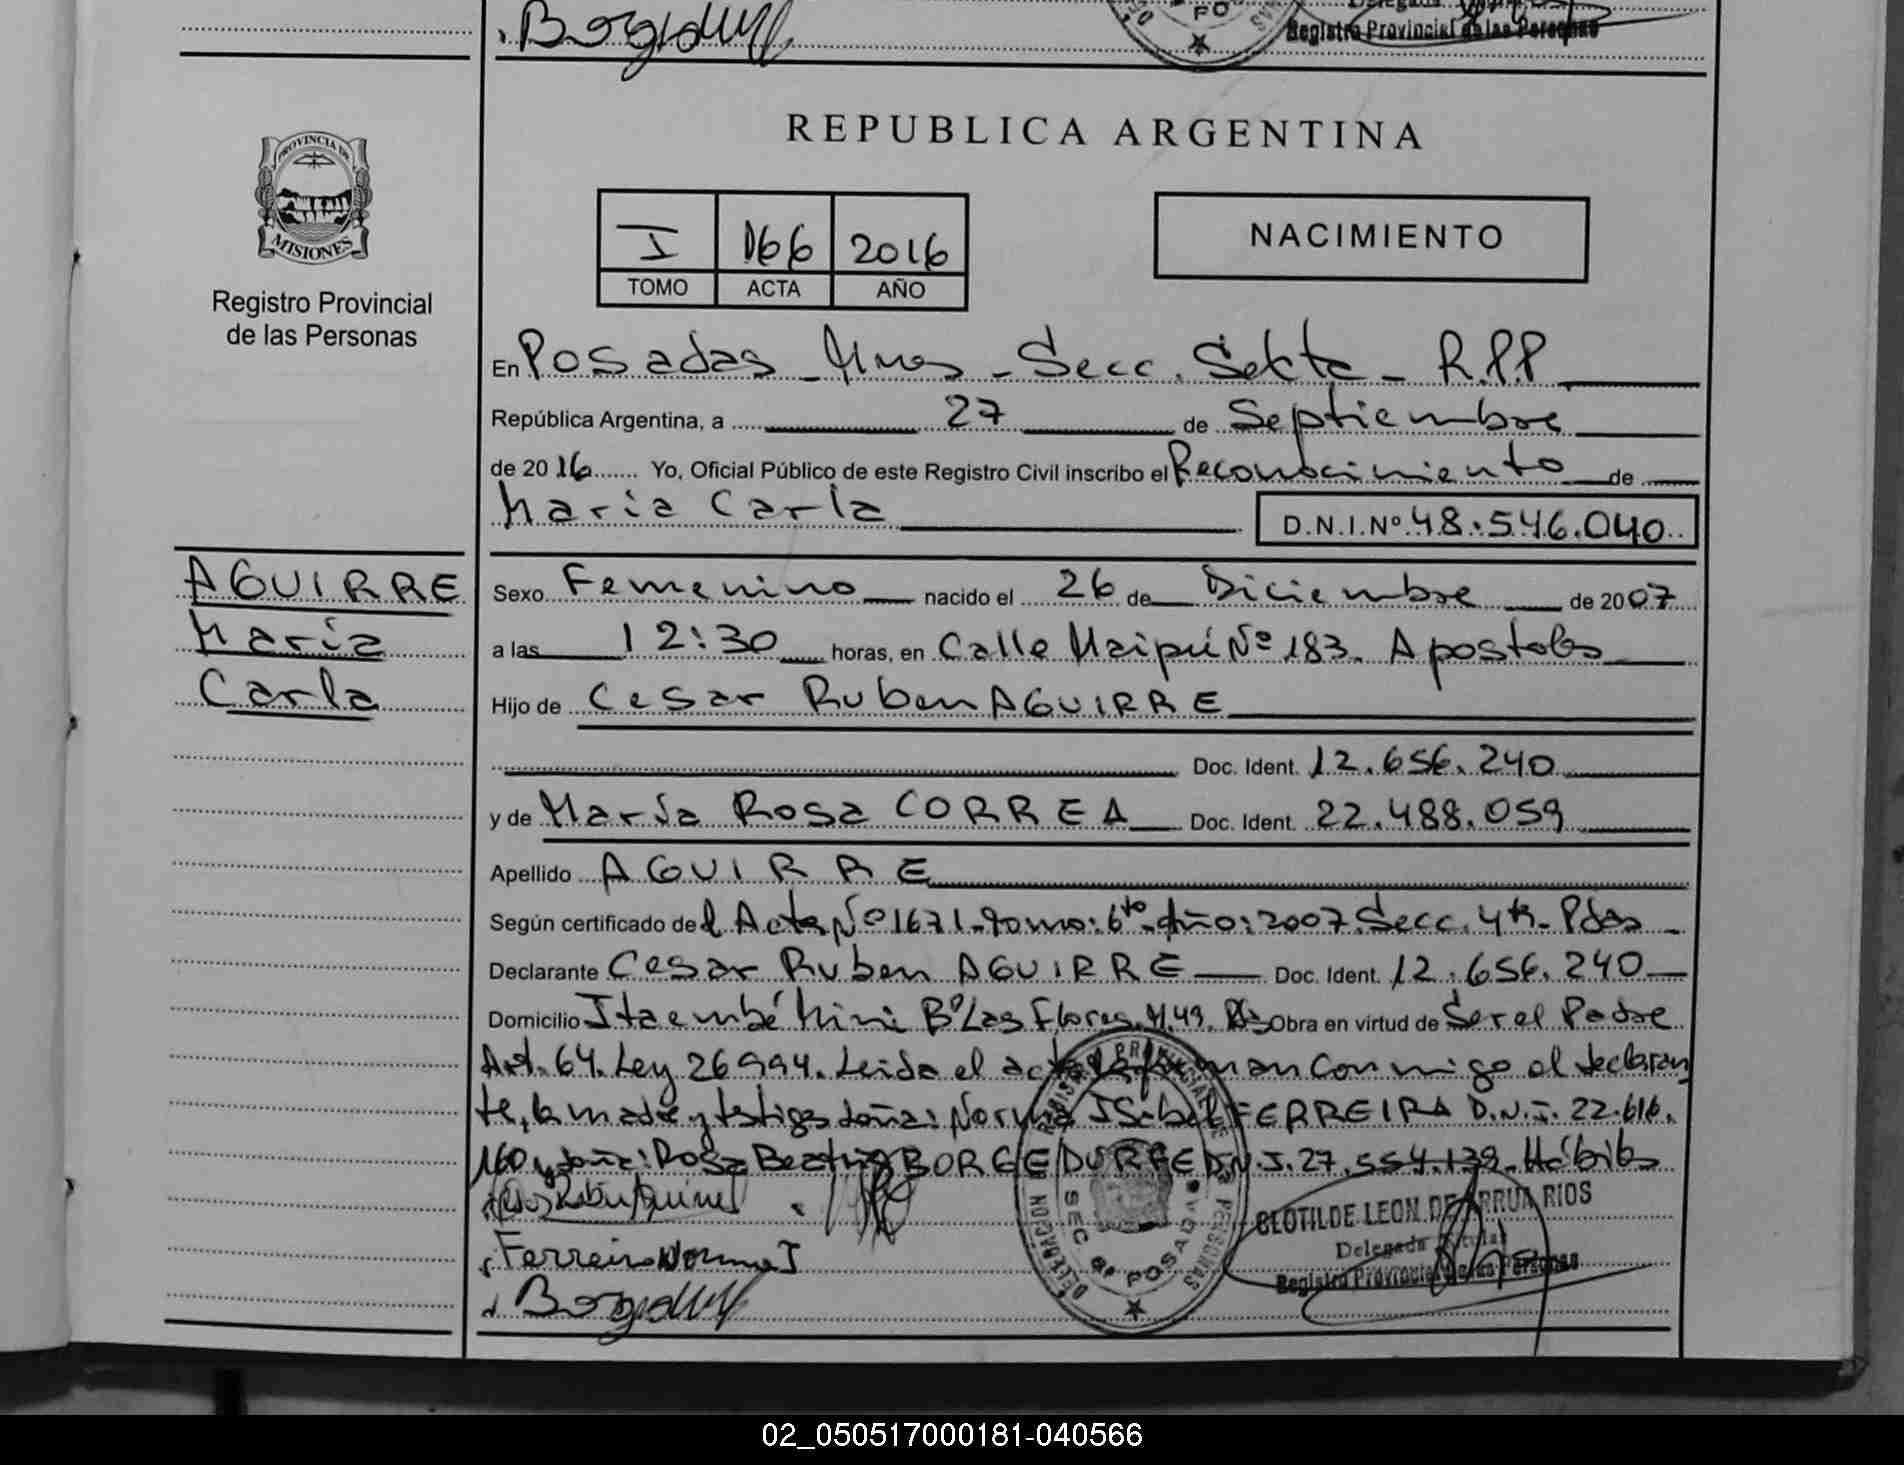 Delegada
PO
Registro Provincial de las Personas
PROVINCIA DE
MISIONES
Registro Provincial
de las Personas
REPUBLICA ARGENTINA
I 166 2016
TOMO ACTA AÑO
NACIMIENTO
En Posadas - Mnes - Secc. Sexta - R.P.P
República Argentina, a 27 de Septiembre
de 2016 Yo, Oficial Público de este Registro Civil inscribo el Reconocimiento de
María Carla
D.N.I.Nº 48.546.040
AGUIRRE
María
Carla
Sexo Femenino nacido el 26 de Diciembre de 2007
a las 12:30 horas, en Calle Maipú Nº 183. Apostoles
Hijo de Cesar Ruben AGUIRRE
Doc. Ident. 12.656.240
y de María Rosa CORREA Doc. Ident. 22.488.059
Apellido AGUIRRE
Según certificado del Acta Nº 1671-tomo: 6to-Año: 2007. Secc. 4ta- Pdas
Declarante Cesar Ruben AGUIRRE Doc. Ident. 12.656.240
Domicilio Itaembé Miní Bº Las Flores. M.49. Pdas Obra en virtud de Ser el Padre
Art. 64. Ley 26994. Leida el acta la firman conmigo el declaran
te, la madre y testigos doña: Norma Isabel FERREIRA D.N.I. 22.616.
160 y doña: Rosa Beatriz BORGEDURFE D.N.I. 27.554.139. Hábiles
Ferreira Norma I
CLOTILDE LEON DE ARRUA RIOS
Delegada Titular
Registro Provincial de las Personas
REGISTRO PROVINCIAL DE LAS PERSONAS
DELEGACION
SEC. 6ª POSADAS
02_050517000181-040566